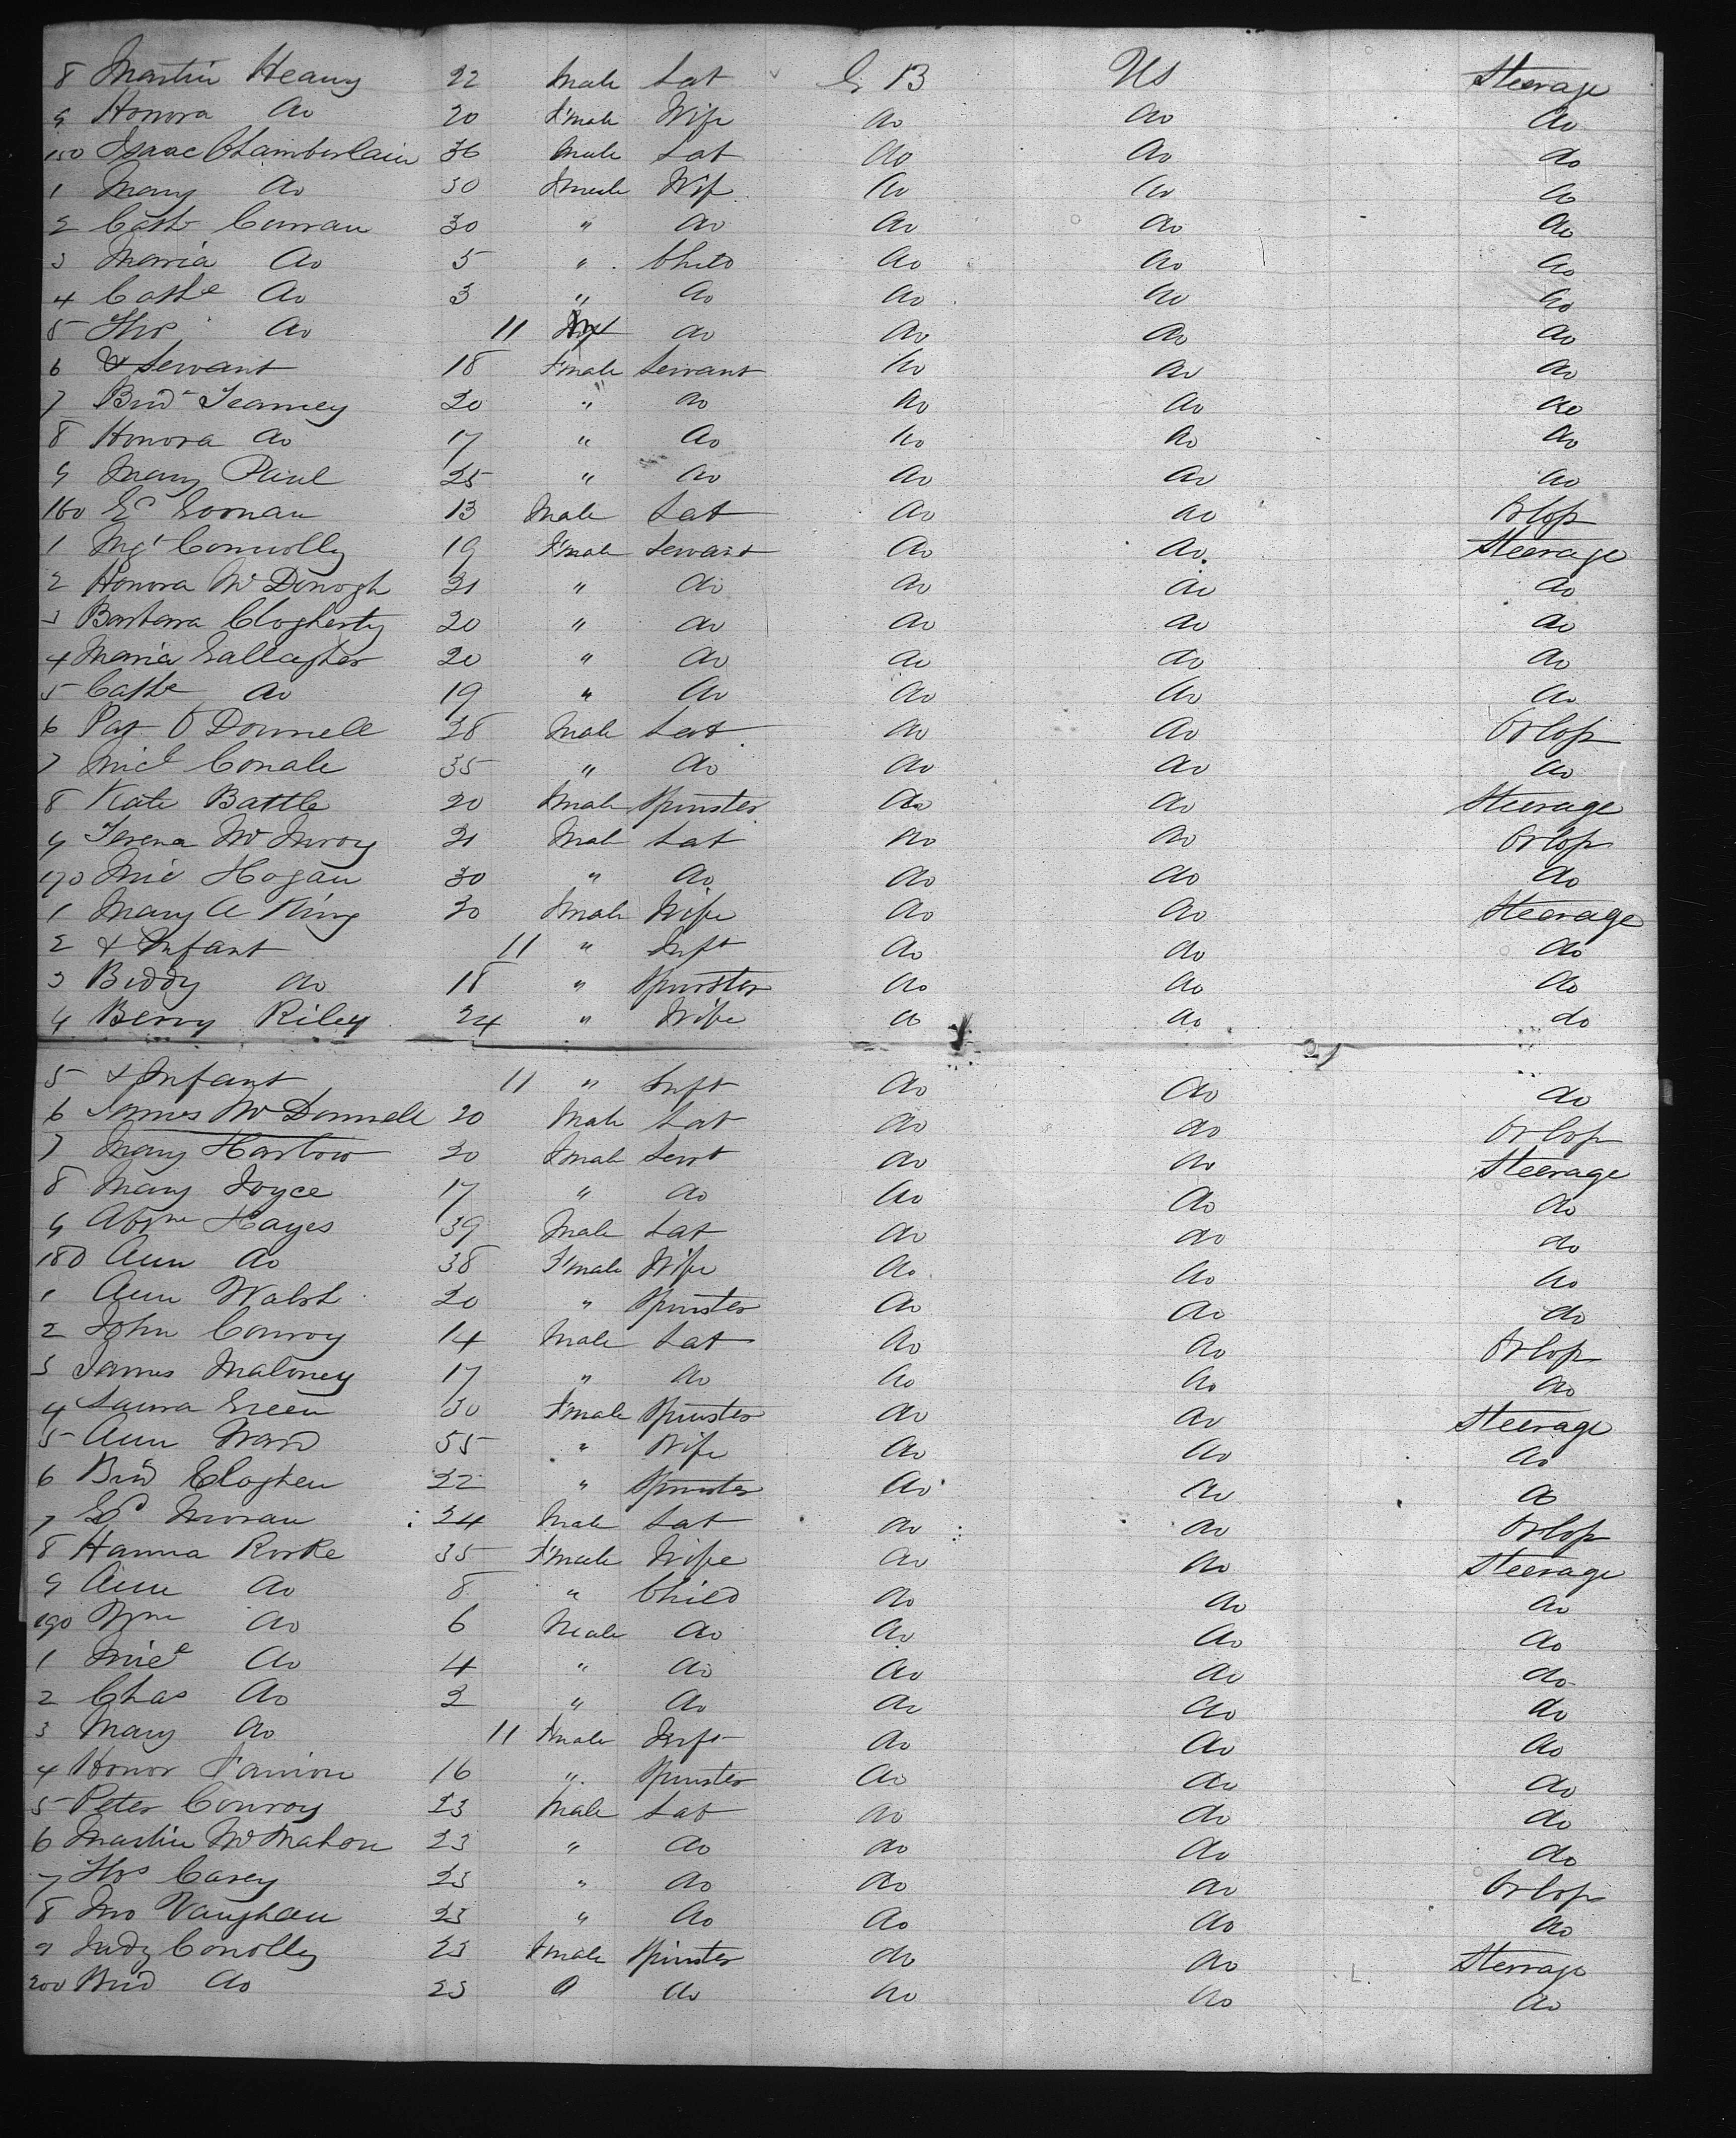 8 Martin Heany 22 Male Lab G B US Steerage
9 Honora do 20 Fmale Wife do do do
150 Isaac Chamberlain 36 Male Lab do do do
1 Mary do 30 Fmale Wif do do do
2 Cath Curran 30 " do do do do
3 Maria do 5 " Child do do do
4 Cathe do 3 " do do do do
5 Thos do 11 do do do do
6 & Servant 18 Fmale Servant do do do
7 Brid Teamey 20 " do do do do
8 Honora do 17 " do do do do
9 Mary Paul 25 " do do do do
160 Ed Goonan 13 Male Lab do do Orlop
1 Mgt Connolly 19 Fmale Servant do do Steerage
2 Honora McDonogh 21 " do do do do
3 Barbara Clogherty 20 " do do do do
4 Maria Gallagher 20 " do do do do
5 Cathe do 19 " do do do do
6 Pat O Donnell 28 Male Lab do do Orlop
7 Micl Conale 35 " do do do do
8 Kate Battle 20 Fmale Spinster do do Steerage
9 Terena McInroy 21 Male Lab do do Orlop
170 Mic Hogan 30 " do do do do
1 Mary A King 30 Fmale Wife do do Steerage
2 & Infant 11 " Inft do do do
3 Biddy do 18 " Spinster do do do
4 Benny Riley 24 " Wife do do do
5 & Infant 11 " Inft do do do
6 James McDonnell 20 Male Lab do do Orlop
7 Mary Harlow 20 Fmale Servt do do Steerage
8 Mary Joyce 17 " do do do do
9 Abm Hayes 39 Male Lab do do do
180 Ann do 38 Fmale Wife do do do
1 Ann Walsh 20 " Spinster do do do
2 John Conroy 14 Male Lab do do Orlop
3 James Maloney 17 " do do do do
4 Laura Green 30 Fmale Spinster do do Steerage
5 Ann Ward 55 " Wife do do do
6 Brid Cloghen 22 " Spinster do do do
7 Ed Moran 24 Male Lab do do Orlop
8 Hanna Rorke 35 Fmale Wife do do Steerage
9 Ann do 8 " Child do do do
190 Wm do 6 Male do do do do
1 Micl do 4 " do do do do
2 Chas do 2 " do do do do
3 Mary do 11 Fmale Inft do do do
4 Honor Fanion 16 " Spinster do do do
5 Peter Conroy 23 Male Lab do do do
6 Martin McMahon 23 " do do do do
7 Thos Carey 23 " do do do Orlop
8 Jno Vaughan 23 " do do do do
9 Judy Conolly 23 Fmale Spinster do do Sterrage
200 Brid do 23 do do do do